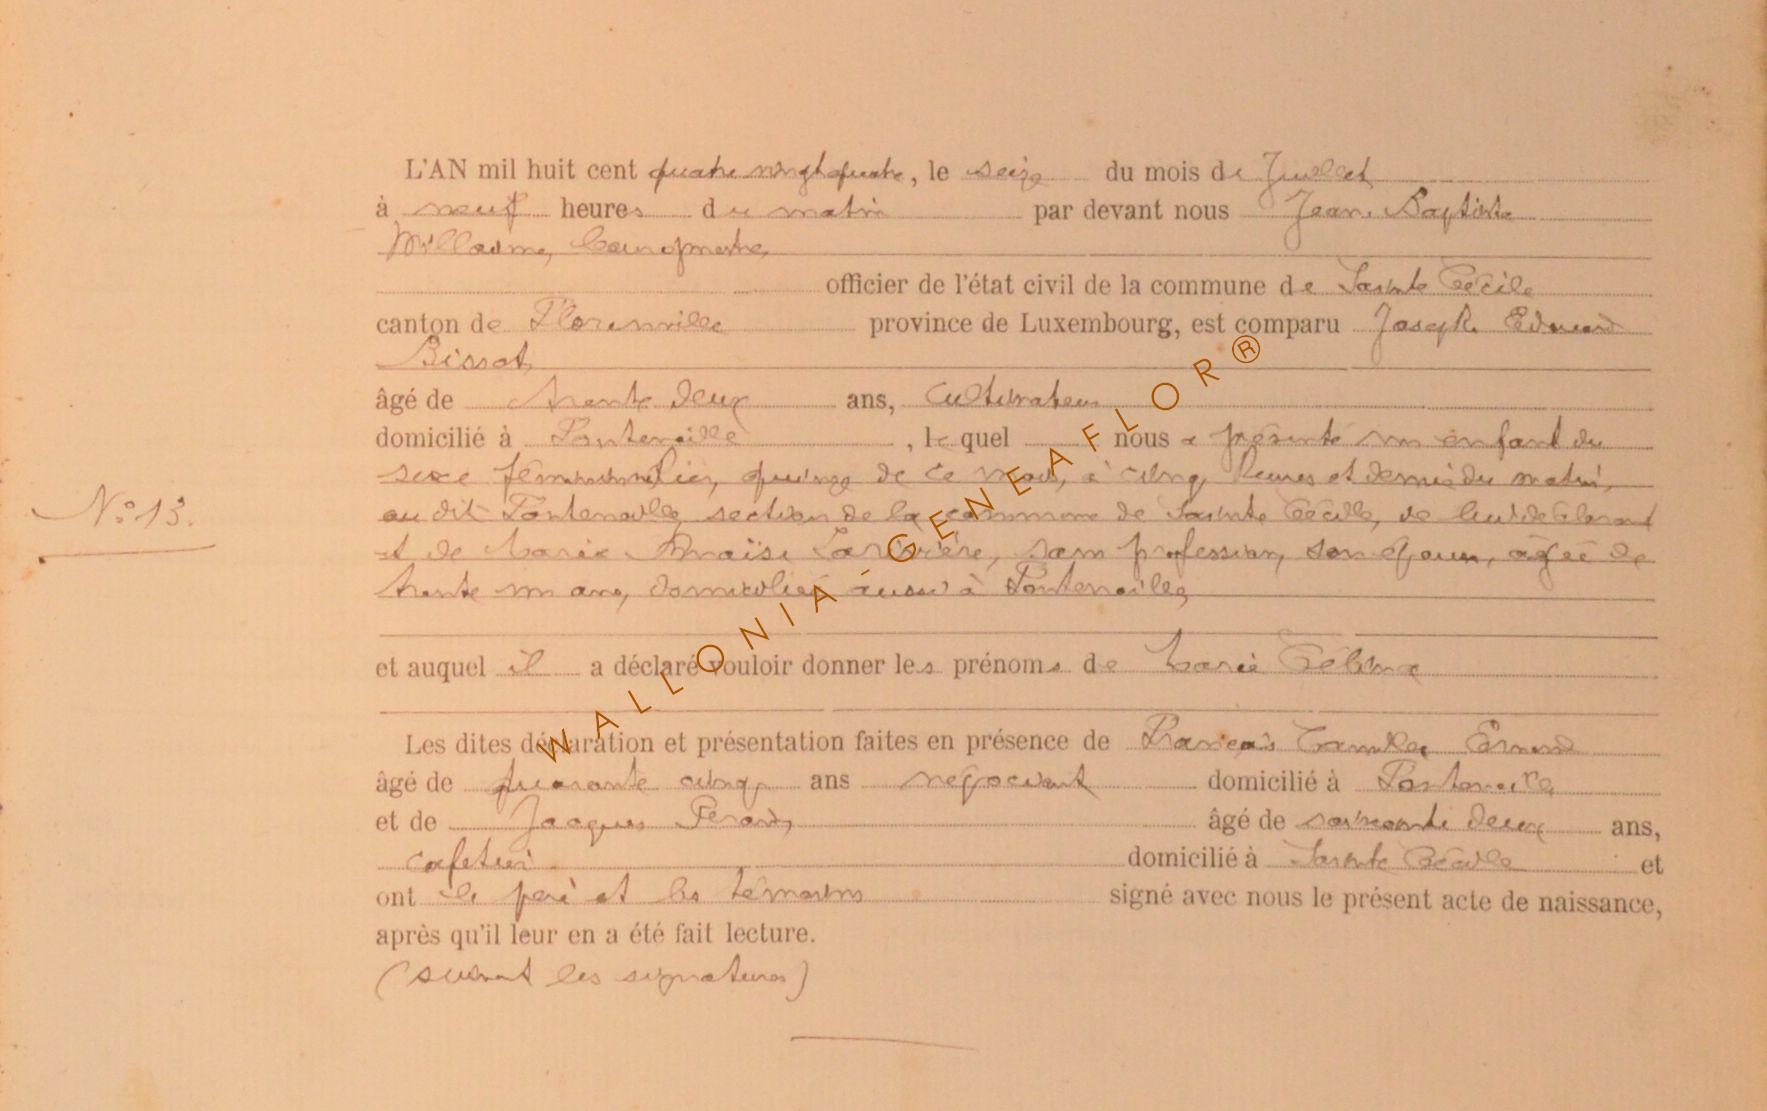 L'AN mil huit cent quatre vingt quatre, le seize du mois de Juillet
à neuf heures du matin par devant nous Jean Baptiste
Willaume, bourgmestre,
officier de l'état civil de la commune de Sainte Cécile
canton de Florenville province de Luxembourg, est comparu Joseph Edouard
Bissot,
âgé de trente deux ans, cultivateur
domicilié à Fontenoille, le quel nous a présenté un enfant du
sexe féminin hier, quinze de ce mois, à cinq heures et demie du matin,
au dit Fontenoille, section de la commune de Sainte Cécile, de lui déclarant
N° 13.
et de Marie Larivière, sans profession, son épouse, âgée de
trente un ans, domiciliée aussi à Fontenoille,
et auquel il a déclaré vouloir donner les prénoms de Marie Célina
Les dites déclaration et présentation faites en présence de François Camille
âgé de quarante cinq ans négociant domicilié à Fontenoille
et de Jacques Perard, âgé de soixante deux ans,
cafetier domicilié à Sainte Cécile et
ont le père et les témoins signé avec nous le présent acte de naissance,
après qu'il leur en a été fait lecture.
(suivent les signatures)
WALLONIA-GENEAFLOR®